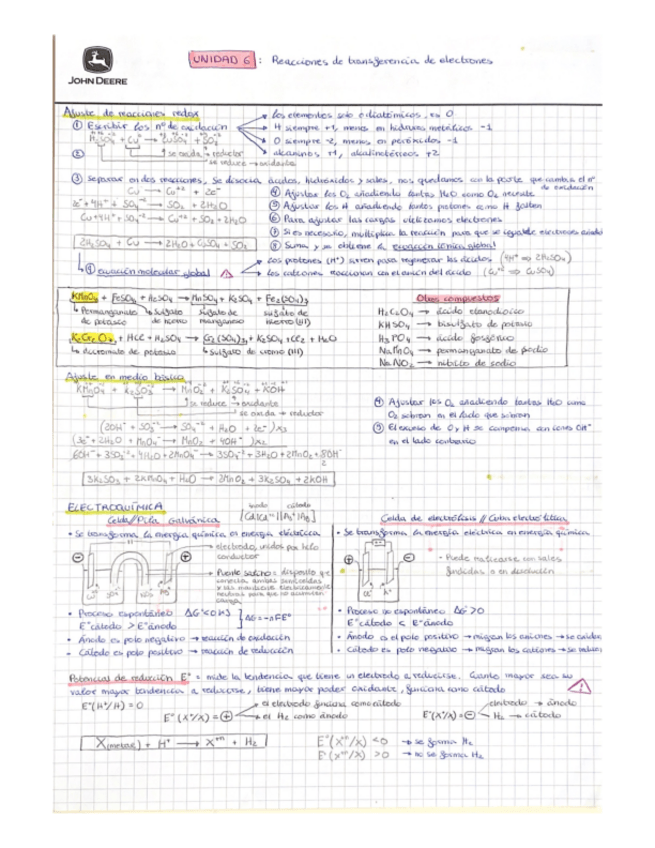 JOHN DEERE
UNIDAD 6 : Reacciones de transferencia de electrones
Ajuste de reacciones redox
① Escribir los nº de oxidación
→ los elementos solo o diatómicos, es 0
→ H siempre +1, menos en hidruros metálicos -1
→ O siempre -2, menos en peróxidos -1
→ alcalinos +1, alcalinotérreos +2
H₂SO₄ + Cu → CuSO₄ + SO₂
② se oxida → reductor
se reduce → oxidante
③ Separar en dos reacciones. Se disocia ácidos, hidróxidos y sales, nos quedamos con la parte que cambia el nº de oxidación
Cu → Cu⁺² + 2e⁻
2e⁻ + 4H⁺ + SO₄⁻² → SO₂ + 2H₂O
Cu + 4H⁺ + SO₄⁻² → Cu⁺² + SO₂ + 2H₂O
2H₂SO₄ + Cu → 2H₂O + CuSO₄ + SO₂
④ Ajustar los O₂ añadiendo tantas H₂O como O₂
⑤ Ajustar los H añadiendo tantos protones como H falten
⑥ Para ajustar las cargas utilizamos electrones
⑦ Si es necesario, multiplica la reacción para que se igualen electrones
⑧ Suma y se obtiene la ecuación iónica global
⑨ ecuación molecular global
→ los protones (H⁺) sirven para regenerar los ácidos (4H⁺ ⇒ 2H₂SO₄)
→ los cationes reaccionan con el anión del ácido (Cu⁺² ⇒ CuSO₄)
KMnO₄ + FeSO₄ + H₂SO₄ → MnSO₄ + K₂SO₄ + Fe₂(SO₄)₃
Permanganato de potasio
Sulfato de hierro
Sulfato de manganeso
sulfato de hierro (III)
K₂Cr₂O₇ + HCl + H₂SO₄ → Cr₂(SO₄)₃ + K₂SO₄ + Cl₂ + H₂O
dicromato de potasio
sulfato de cromo (III)
Otros compuestos
H₂C₂O₄ → ácido etanodioico
KHSO₄ → bisulfato de potasio
H₃PO₄ → ácido fosfórico
NaMnO₄ → permanganato de sodio
NaNO₂ → nitrito de sodio
Ajuste en medio básico
KMnO₄ + K₂SO₃ → MnO₂ + K₂SO₄ + KOH
se reduce → oxidante
se oxida → reductor
(2OH⁻ + SO₃⁻² → SO₄⁻² + H₂O + 2e⁻) x3
(3e⁻ + 2H₂O + MnO₄⁻ → MnO₂ + 4OH⁻) x2
6OH⁻ + 3SO₃⁻² + 4H₂O + 2MnO₄⁻ → 3SO₄⁻² + 3H₂O + 2MnO₂ + 8OH⁻
2
3K₂SO₃ + 2KMnO₄ + H₂O → 2MnO₂ + 3K₂SO₄ + 2KOH
④ Ajustar los O₂ añadiendo tantas H₂O como O₂ sobran en el lado que sobran
⑤ El exceso de O y H se compensa con iones OH⁻ en el lado contrario
ELECTROQUÍMICA
ánodo cátodo
Celda // Pila Galvánica
• Se transforma la energía química en energía eléctrica
electrodo, unidos por hilo conductor
Puente salino = dispositivo que conecta ambas semiceldas
• Proceso espontáneo ΔG<0
ΔG = -nFE°
E°cátodo > E°ánodo
• Ánodo es polo negativo → reacción de oxidación
• Cátodo es polo positivo → reacción de reducción
Celda de electrólisis // Cuba electrolítica
• Se transforma la energía eléctrica en energía química
• Puede realizarse con sales fundidas o en disolución
• Proceso no espontáneo ΔG>0
E°cátodo < E°ánodo
• Ánodo es el polo positivo → migran los aniones → se oxidan
• Cátodo es polo negativo → migran los cationes → se reducen
Potencial de reducción E° = mide la tendencia que tiene un electrodo a reducirse. Cuanto mayor sea su
valor mayor tendencia a reducirse, tiene mayor poder oxidante, funciona como cátodo
E°(H⁺/H) = 0
E°(X⁺/X) = ⊕
→ el electrodo funciona como cátodo
→ el H₂ como ánodo
E°(X⁺/X) = ⊖
electrodo → ánodo
H₂ → cátodo
X(metal) + H⁺ → X⁺ⁿ + H₂
E°(X⁺ⁿ/X) < 0 → se forma H₂
E°(X⁺ⁿ/X) > 0 → no se forma H₂